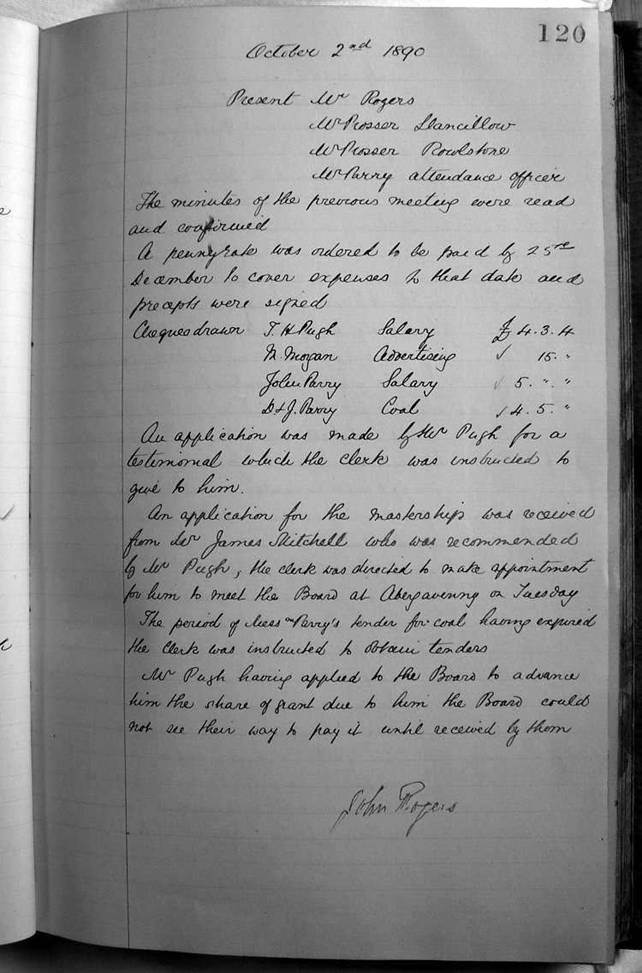 120
October 2nd 1890
Present Mr Rogers
Mr Prosser Llancillow
Mr Prosser Rowlstone
Mr Parry attendance officer
The minutes of the previous meeting were read
and confirmed
A penny rate was ordered to be paid by 25th
December to cover expenses to that date and
precepts were signed
Cheques drawn T. H. Pugh Salary £4.3.4
M. Morgan Advertising ✓ 15. "
John Parry Salary ✓ 5. ". "
D & J. Parry Coal ✓ 4. 5. "
An application was made by Mr Pugh for a
testimonial which the clerk was instructed to
give to him.
An application for the mastership was received
from Mr James Mitchell who was recommended
by Mr Pugh, the clerk was directed to make appointment
for him to meet the Board at Abergavenny on Tuesday
The period of Messrs Parry's tender for coal having expired
the clerk was instructed to obtain tenders
Mr Pugh having applied to the Board to advance
him the share of grant due to him the Board could
not see their way to pay it until received by them
John Rogers